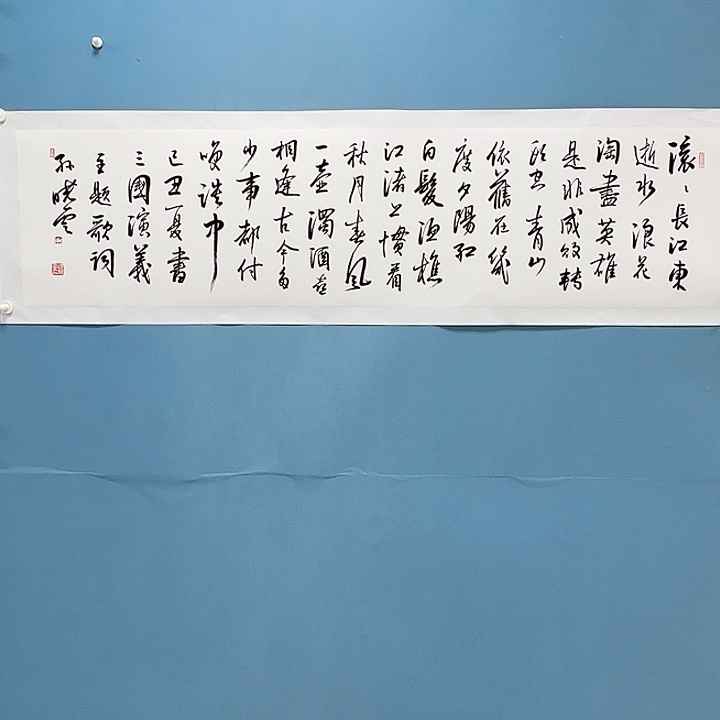 滚〻長江東
逝水浪花
淘盡英雄
是非成敗轉
頭空青山
依舊在幾
度夕陽紅
白髮漁樵
江渚上慣看
秋月春風
一壺濁酒喜
相逢古今多
少事都付
笑談中
己丑夏書
三國演義
主題歌詞
孙晓云